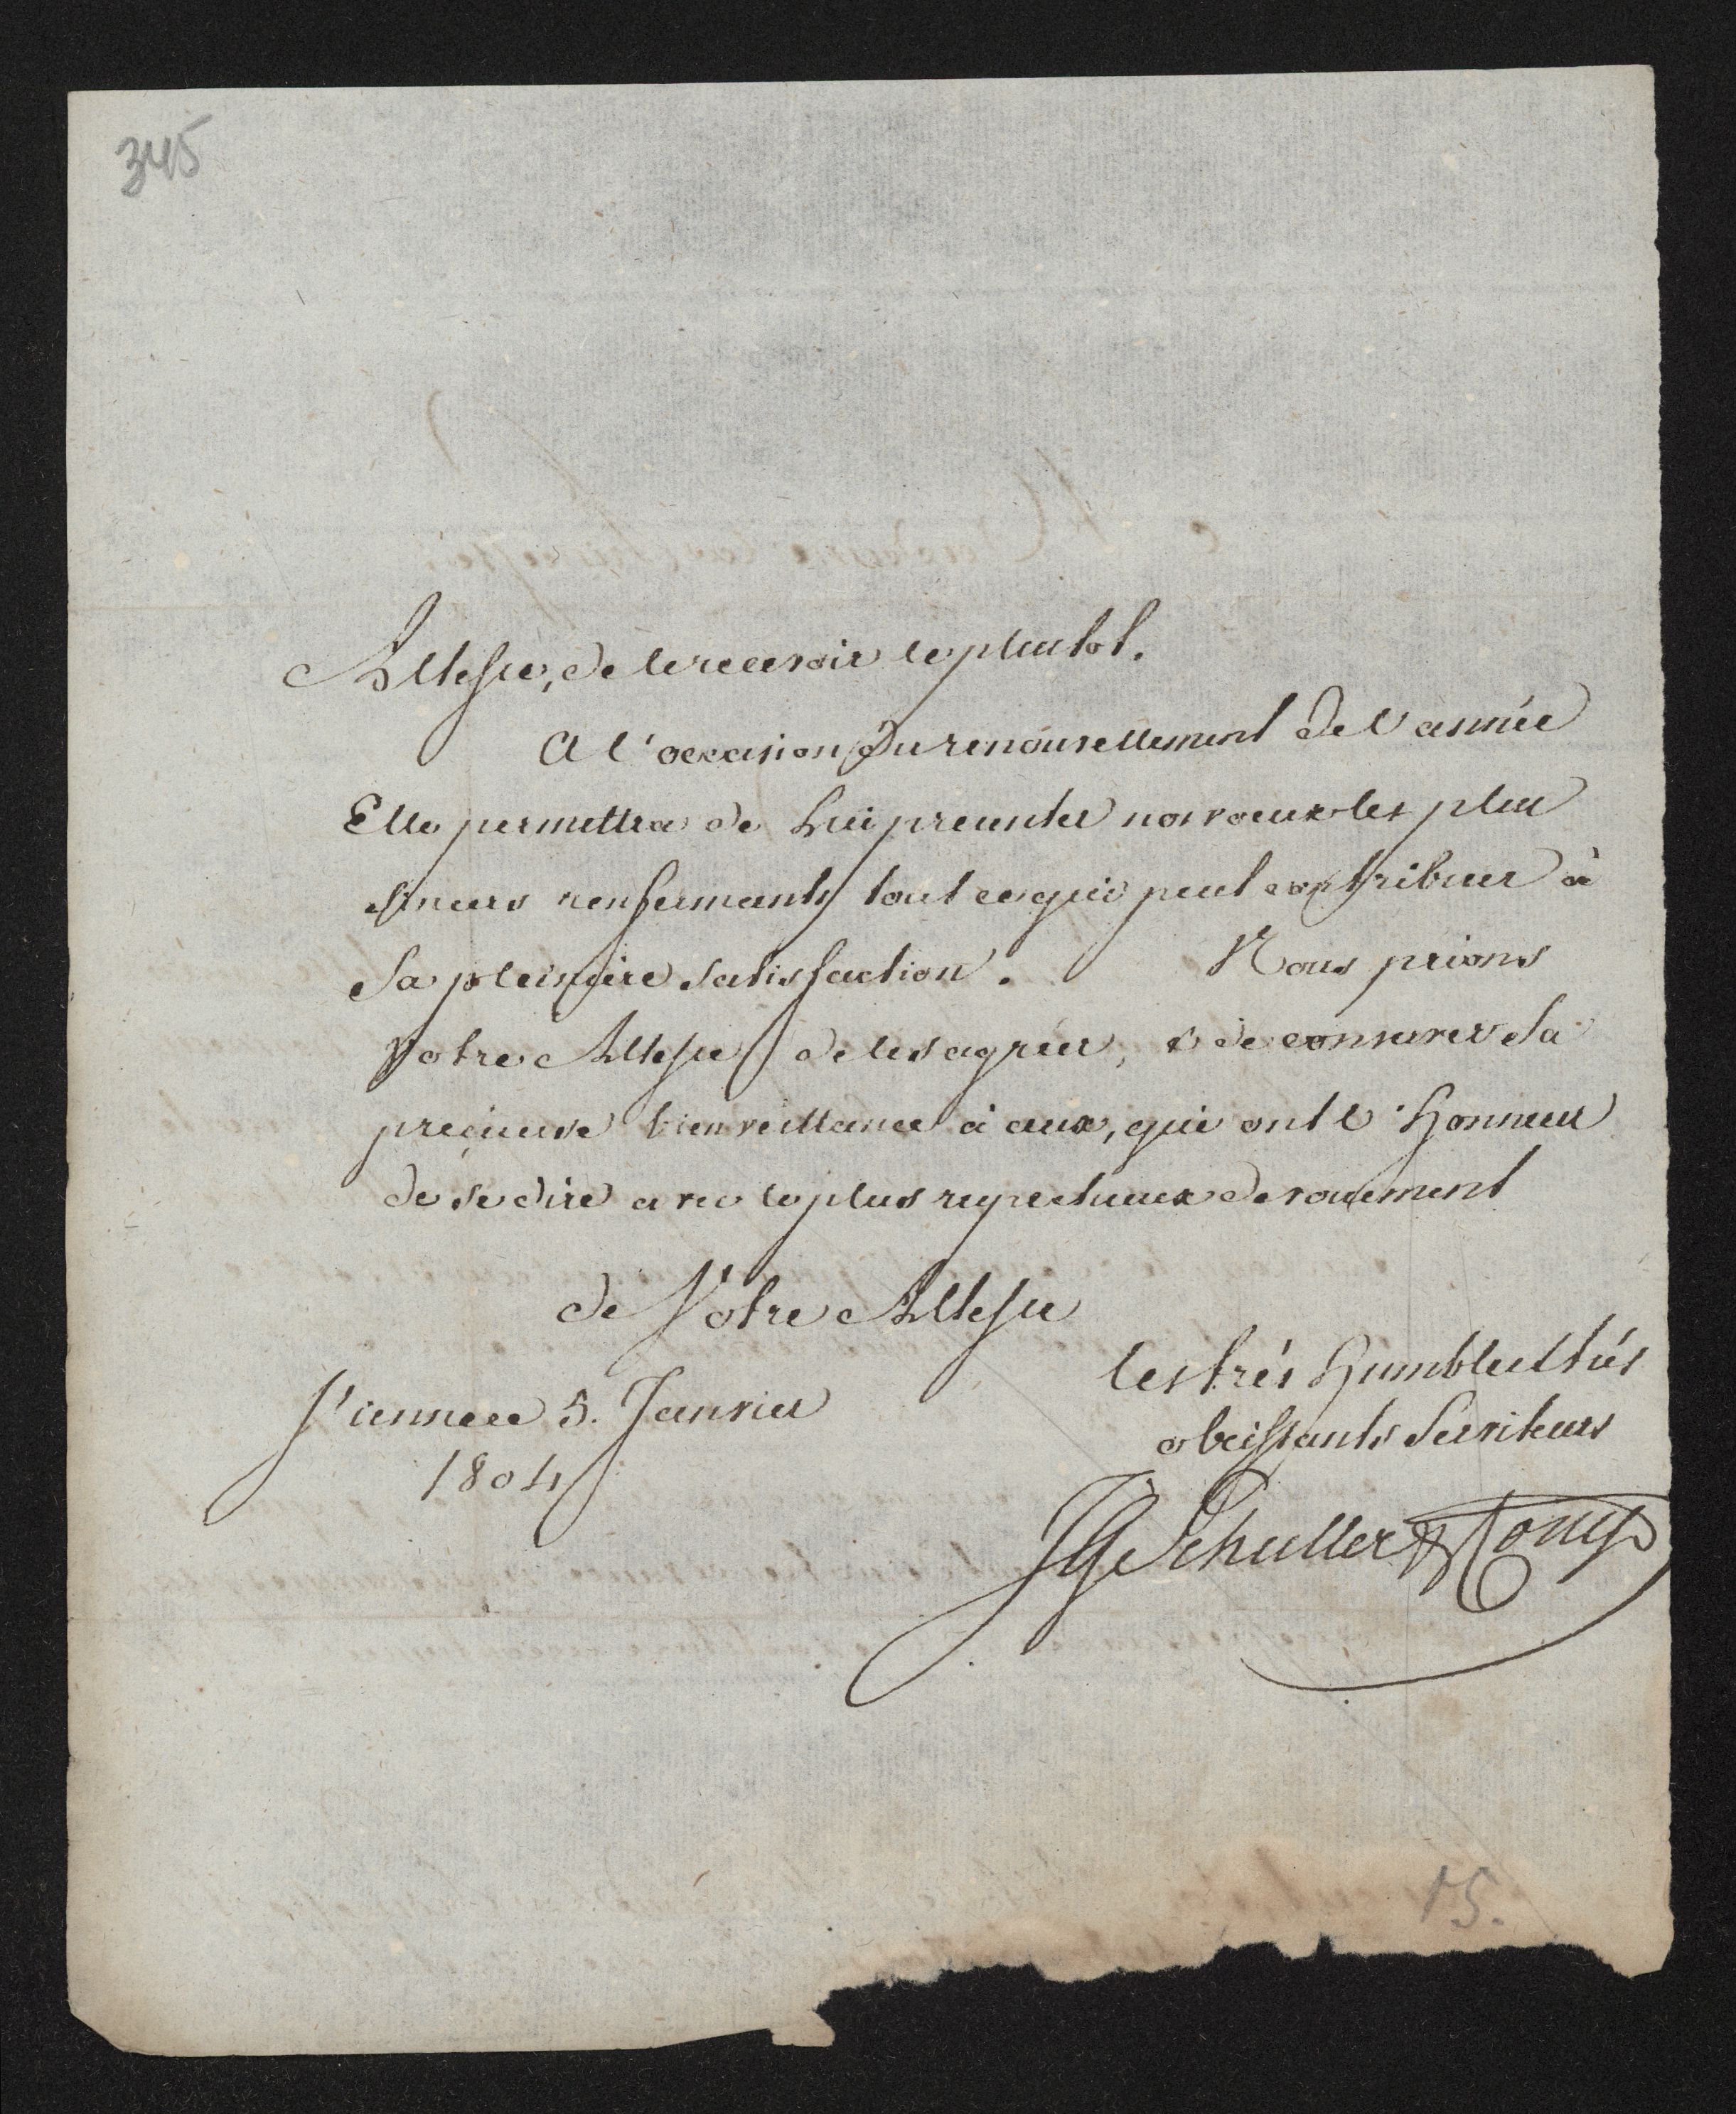 345
Altesse, de le recevoir le plustot.
A l'occasion du renouvellement de l'année
Elle permettra de Lui presenter nos voeux les plus
sinceres renfermants tout ce qui peut contribuer à
Sa pleiniere satisfaction. Nous prions
Votre Altesse de les agréer, & de conserver Sa
preçieuse bienveillance à ceux, qui ont l'Honneur
de se dire avec le plus respectueux devouement
de Votre Altesse
les trés Humbles & trés
Vienne ce 5. Janvier
obeissants Serviteurs
1804
JG Schuller & Comp
15.